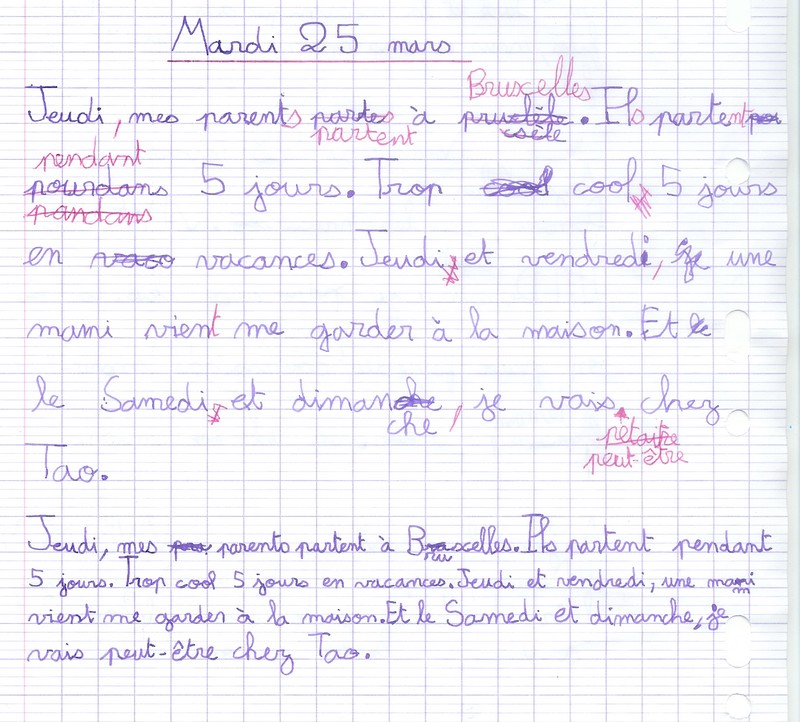 Mardi 25 mars
Bruxelles
Jeudi, mes parents partes à pruselële. Ils partent
partent csèle
pendant
pourdans 5 jours. Trop cool cool 5 jours
pandans
en vacances. Jeudi et vendredi, je une
mami vient me garder à la maison. Et le
le Samedi et dimanche, je vais chez
che pétaitre
peut-être
Tao.
Jeudi, mes parents partent à Bruxelles. Ils partent pendant
5 jours. Trop cool 5 jours en vacances. Jeudi et vendredi, une mami
vient me garder à la maison. Et le Samedi et dimanche, je
vais peut-être chez Tao.